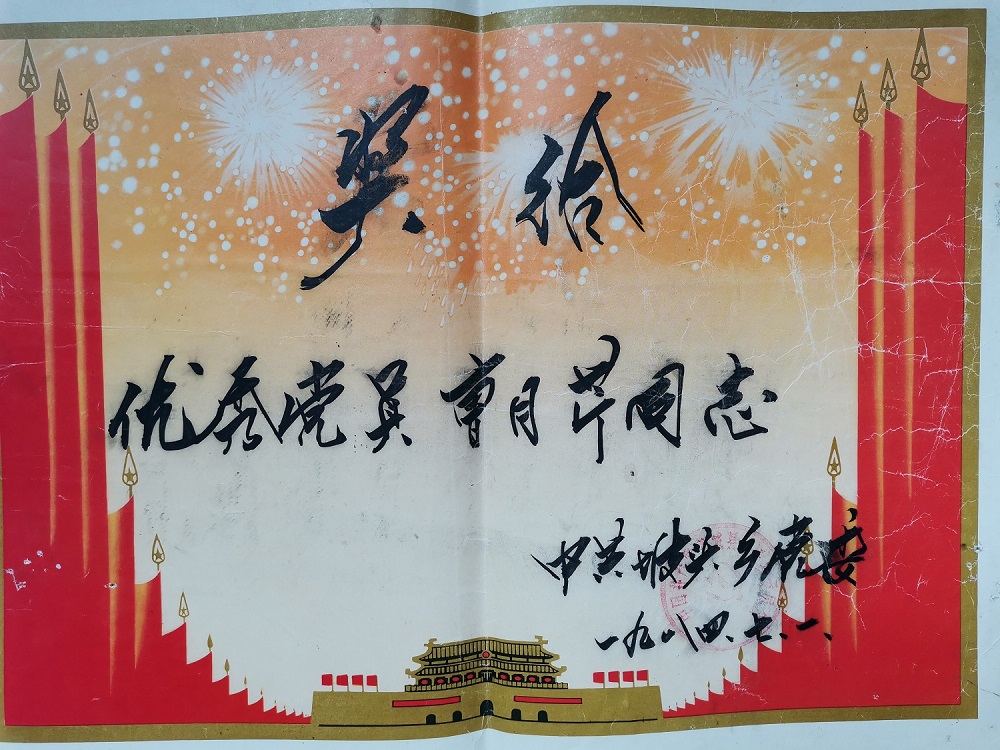 奖给
优秀党员曹月芹同志
中共坡头乡党委
一九八四.七.一.